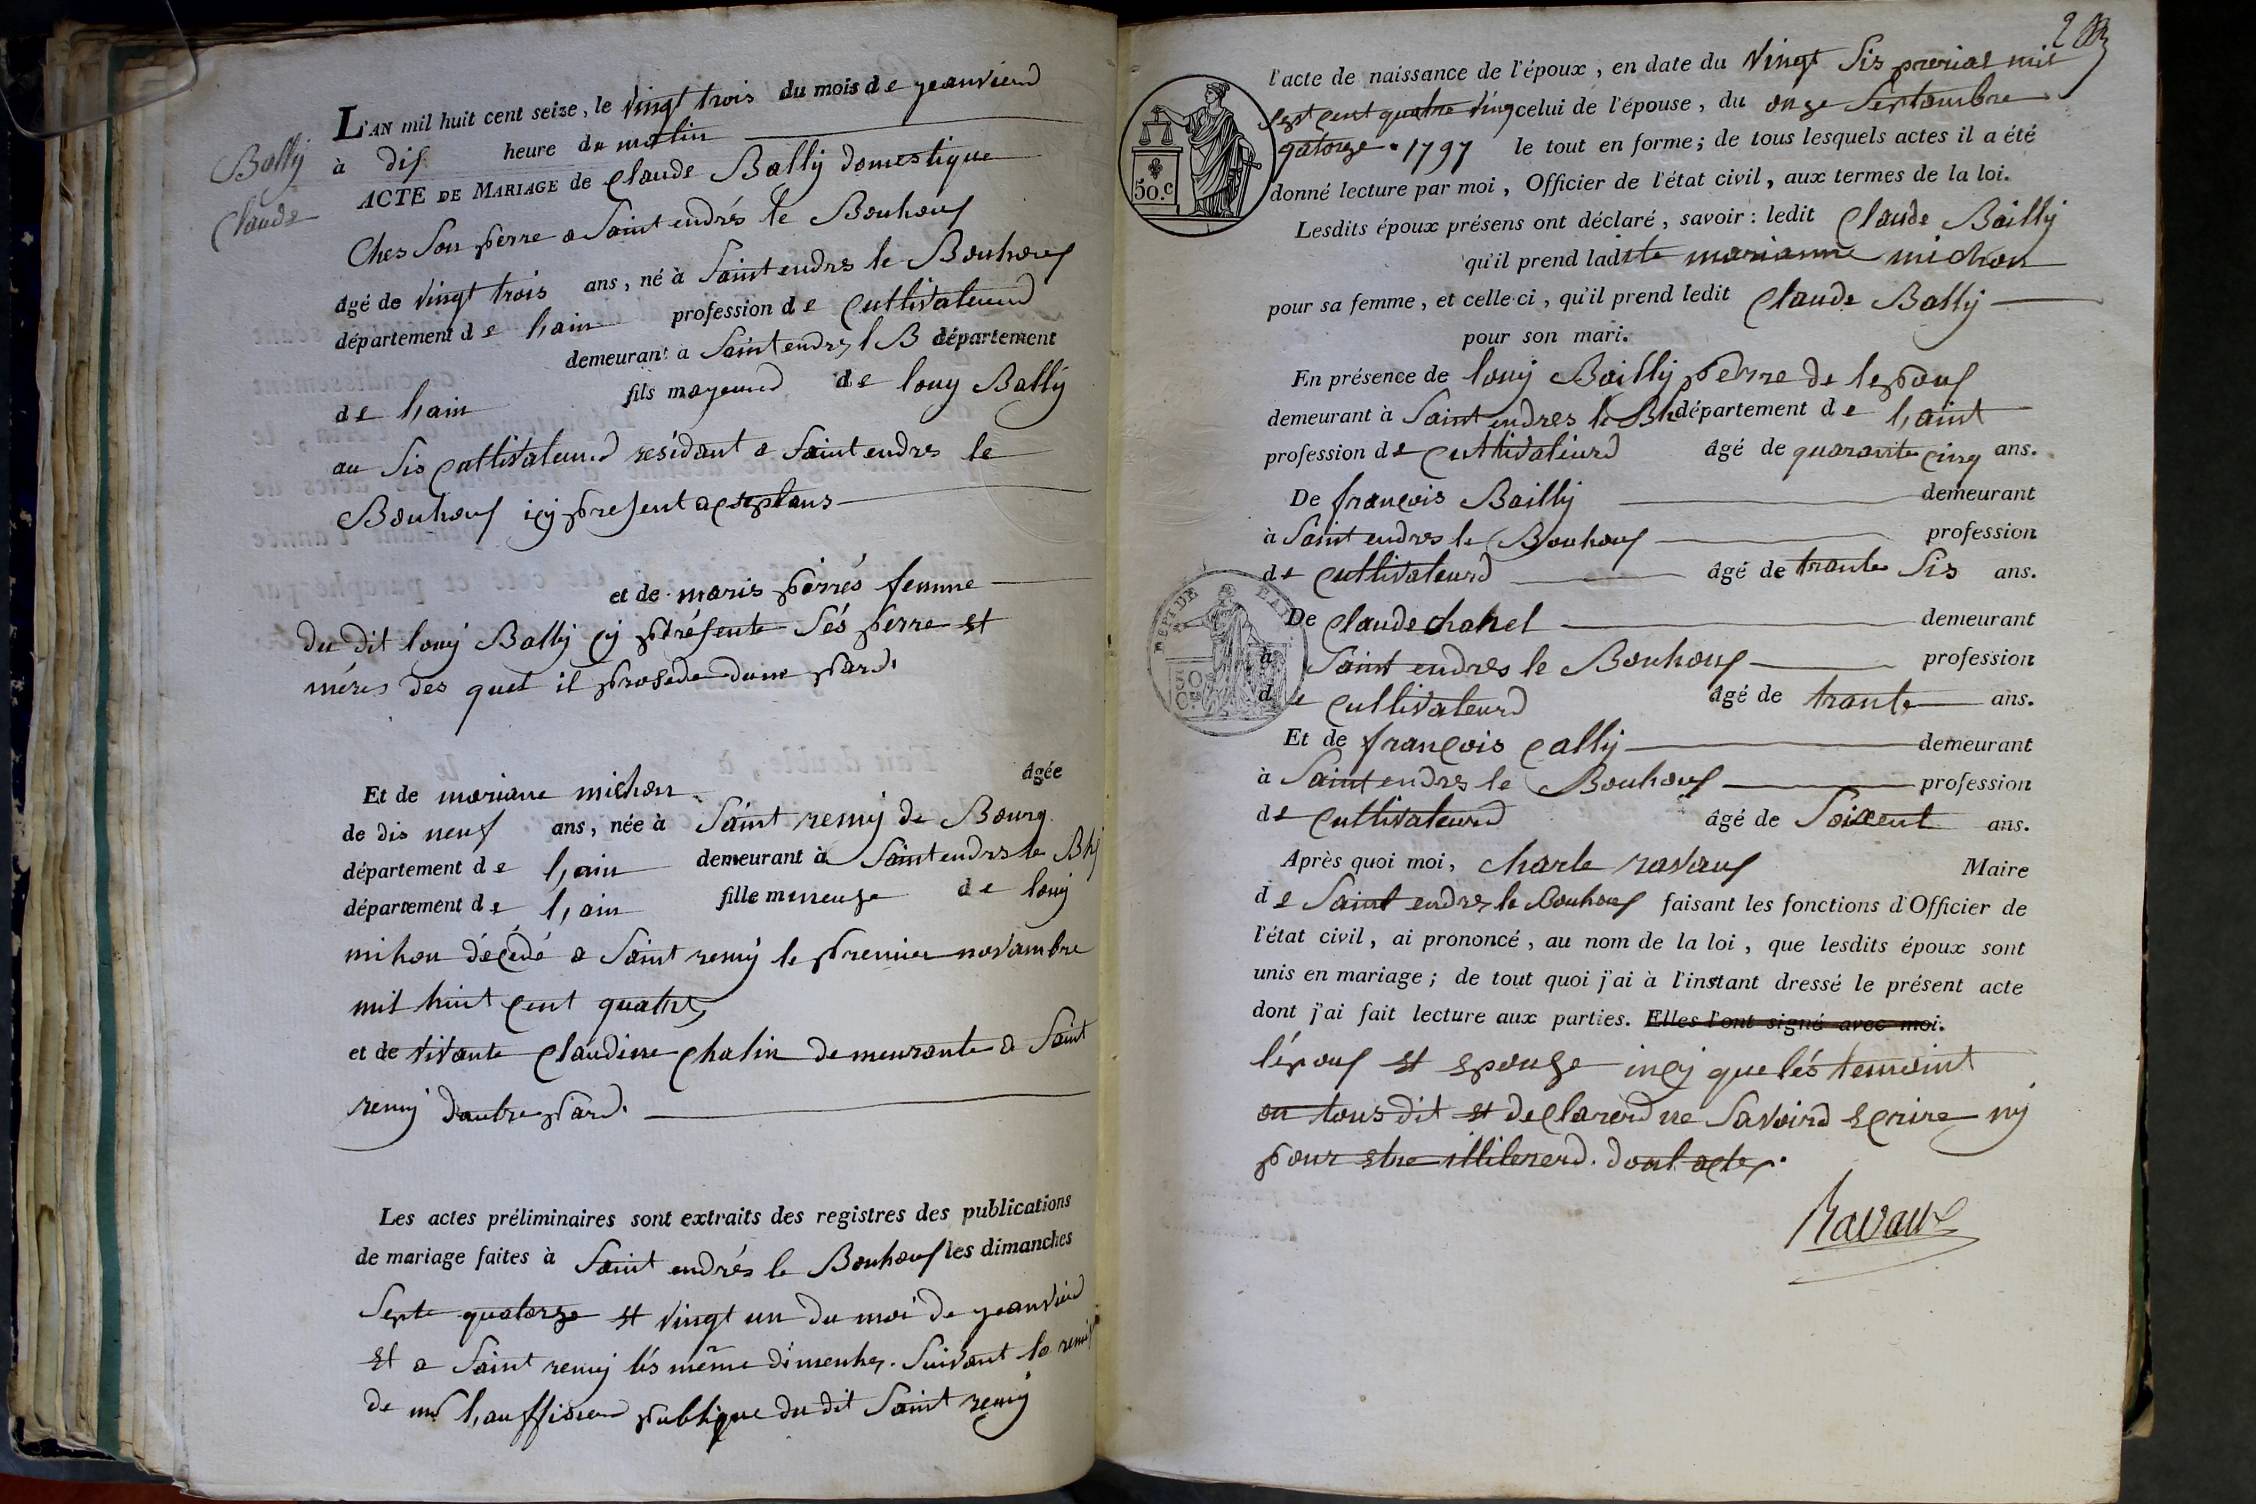 Bally
Claude
L'AN mil huit cent seize, le vingt trois du mois de jeanvierd
à dis heure du matin
ACTE DE MARIAGE de Claude Bally domestique
Ches son perre a Saint endrés le Bouhouf
âgé de vingt trois ans, né à Saint endres le Bouhouf
département de l,ain profession de Cultivateurd
demeurant à Saint endres l B département
de l,ain fils mageurd de louy Bally
au sis Cultivateurd residant a Saint endres le
Bouhouf icy present
et de maris perrés femme
du dit louy Bally cy présente sés perre et
méres des quel il prosede dune pard.
Et de mariane michon âgée
de dis neuf ans, née à Saint remy de Bourg
département de l,ain demeurant à Saint endres le Bhj
département de l,ain fille mineuse de louy
mihon décédé a Saint remy le premier novambre
mil huit cent quatre
et de vivante Claudine Chalin demeurante a Saint
remy dautre pard.
Les actes préliminaires sont extraits des registres des publications
de mariage faites à Saint endrés le Bouhouf les dimanches
Septe quatorze et vingt un du moi de jeanvierd
et a Saint remy lés même dimenhes. Suivant la remis
de mr l,auffisierd publique du dit Saint remy
l'acte de naissance de l'époux, en date du vingt sis prerial mil
sept cent quatre ving celui de l'épouse, du onze Septambre
qatorze. 1797 le tout en forme; de tous lesquels actes il a été
donné lecture par moi, Officier de l'état civil, aux termes de la loi.
50.c
Lesdits époux présens ont déclaré, savoir: ledit Claude Bailly
qu'il prend ladite marianne michon
pour sa femme, et celle-ci, qu'il prend ledit Claude Bally
pour son mari.
En présence de louy Bailly perre de lepouf
demeurant à Saint endres le Bh département de l,aint
profession de Cultivateurd âgé de quarante cinq ans.
De françois Bailly demeurant
à Saint endres le Bouhouf profession
de Cultivateurd âgé de trante sis ans.
De Claude chanel demeurant
à Saint endres le Bouhouf profession
de Cultivateurd âgé de trante ans.
Et de françois Cally demeurant
à Saint endres le Bouhouf profession
de Cultivateurd âgé de Soixent ans.
Après quoi moi, charle ravauf Maire
de Saint endres le Bouhouf faisant les fonctions d'Officier de
l'état civil, ai prononcé, au nom de la loi, que lesdits époux sont
unis en mariage; de tout quoi j'ai à l'instant dressé le présent acte
dont j'ai fait lecture aux parties. Elles l'ont signé avec moi.
lépouf et epouse incy que lés temoint
on tous dit et declarerd ne savoird ecrire ny
pour etre illiterérd. dont acte.
Ravauf